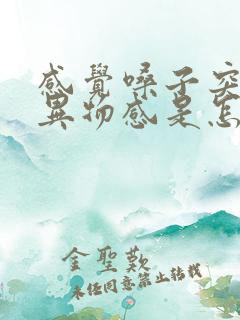 感覺嗓子突
異物感是怎
金聖歎
未經同意禁止轉載